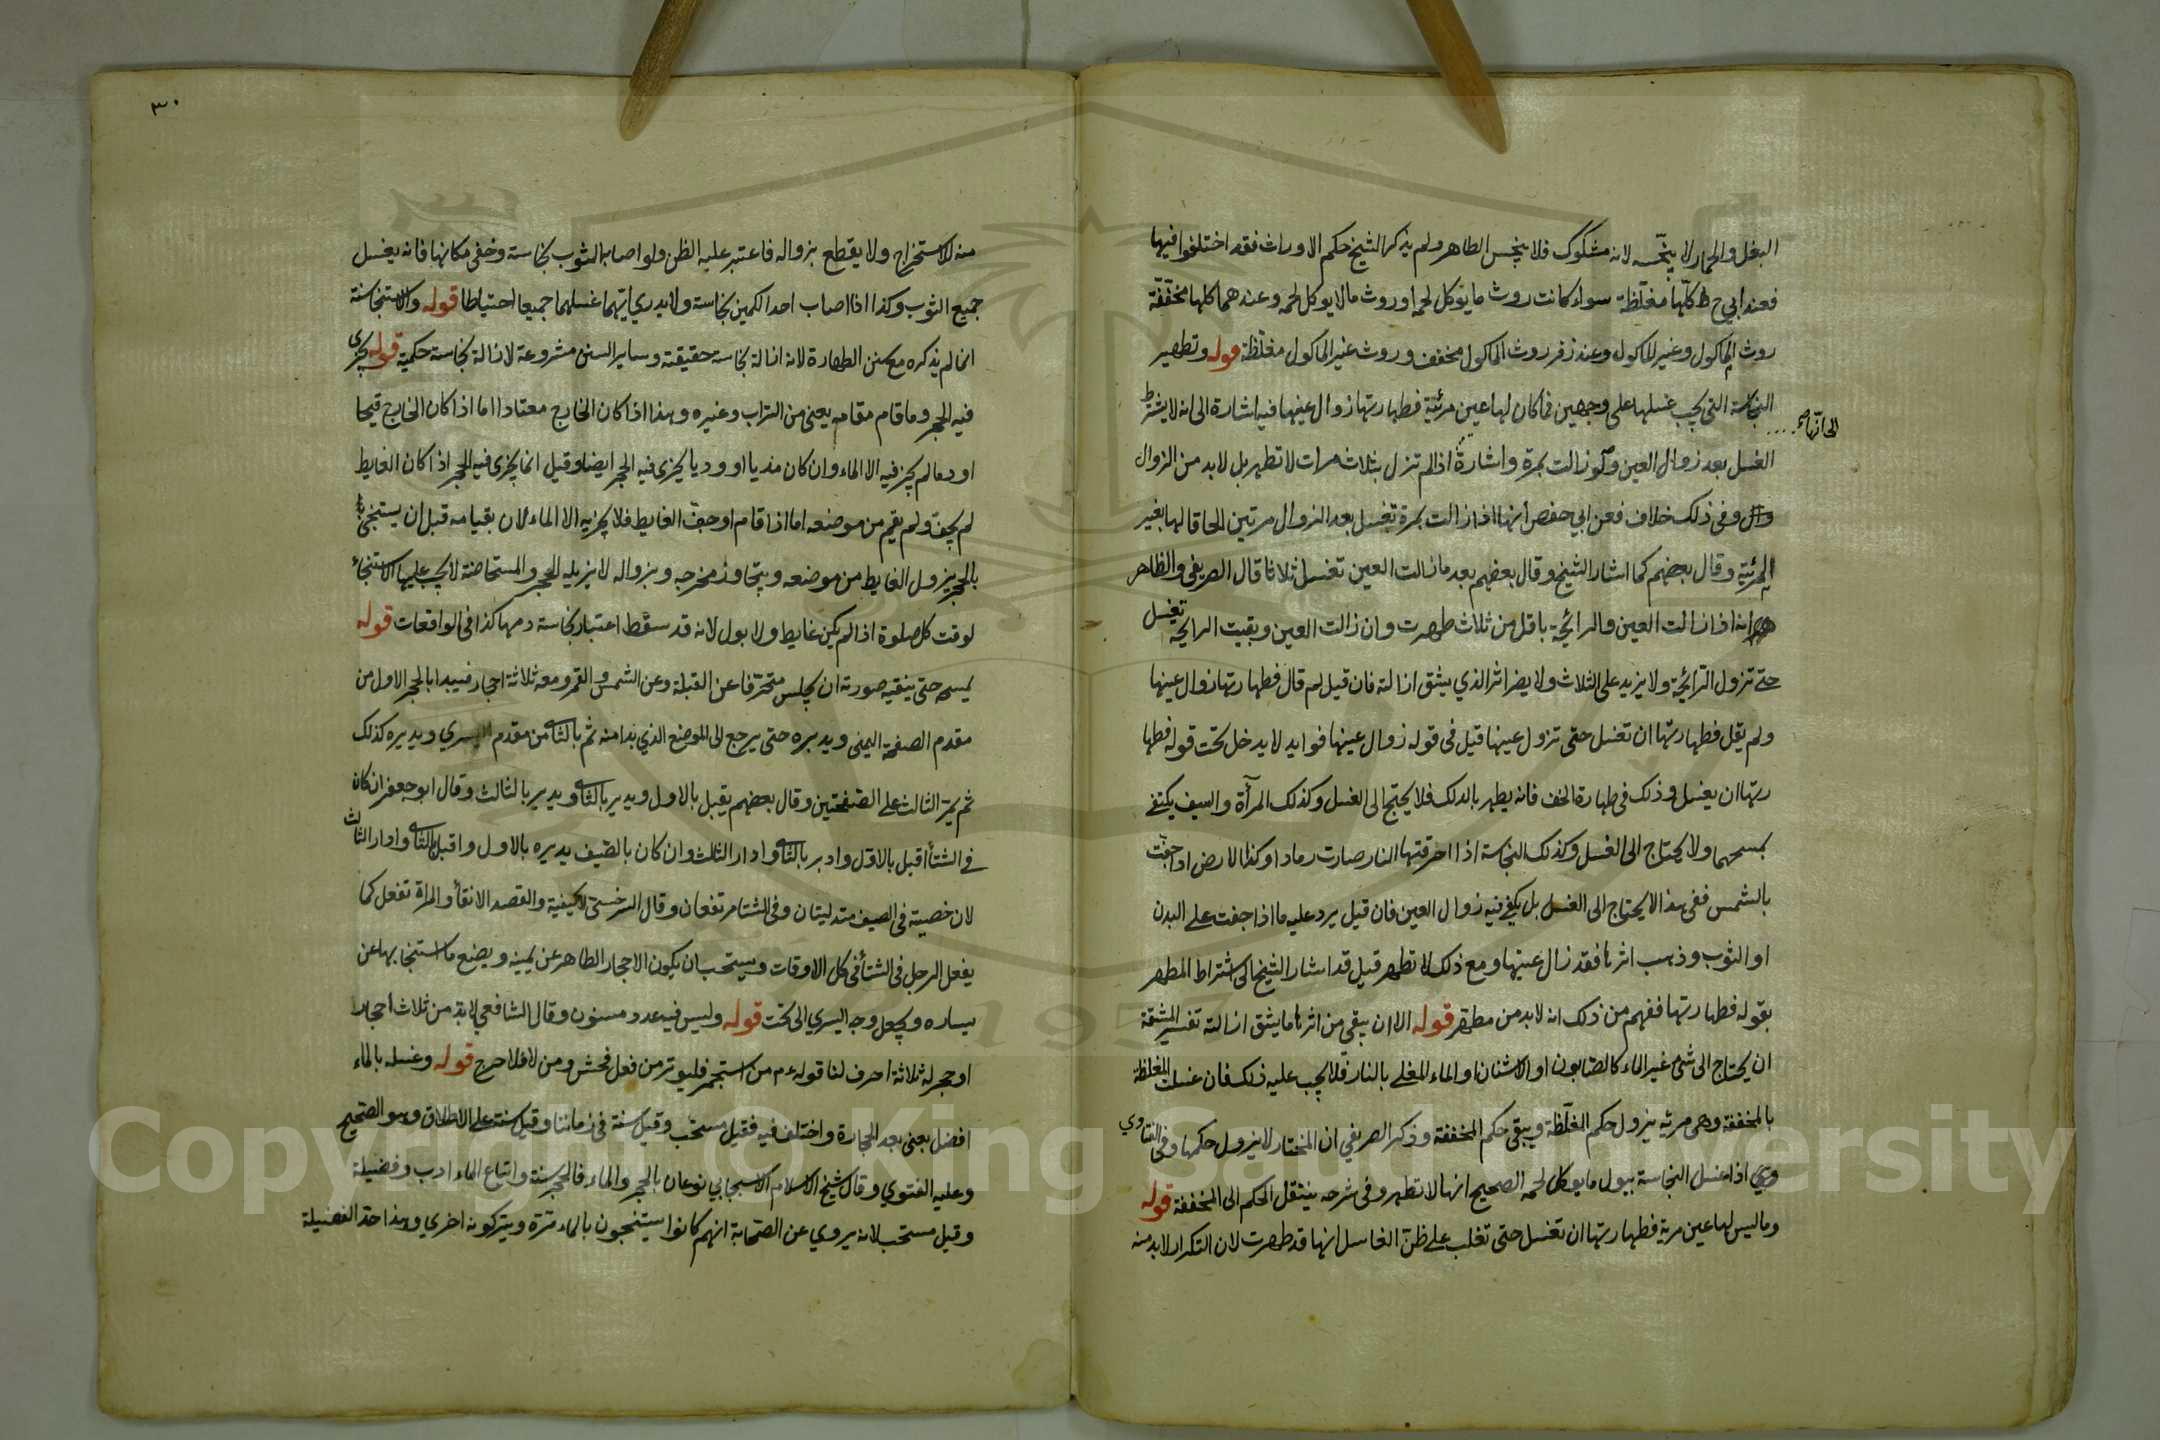 البغل والحمار لا ينجسه لانه مشكوك فلا ينجس الطاهر ولم يذكر الشيخ حكم الاوراث فقد اختلفوا فيها
فعند ابي ح كلها مغلظة سواء كانت روث ما يوكل لحمه او روث ما لا يوكل لحمه وعندهما كلها مخففة
روث الماكول وغير الماكول وعند زفر روث الماكول مخفف وروث غير الماكول مغلظة قوله وتطهير
النجاسة التي يجب غسلها على وجهين فما كان لها عين مرئية فطهارتها زوال عينها فيه اشارة الى انه لا يشترط
الى انها
الغسل بعد زوال العين ولو زالت بمرة واشارة اذا لم تزل بثلاث مرات لا تطهر بل لا بد من الزوال
وفي ذلك خلاف فعن ابي حفص انها اذا زالت بمرة تغسل بعد الزوال مرتين الحاقا لها بغير
المرئية وقال بعضهم كما اشار الشيخ وقال بعضهم بعد ما زالت العين تغسل ثلاثا قال الصريفي والظاهر
انه اذا زالت العين والرائحة باقل من ثلاث طهرت وان زالت العين وبقيت الرايحة تغسل
حتى تزول الرائحة ولا يزيد على الثلاث ولا يضر اثر الذي يشق ازالته فان قيل لم قال فطهارتها زوال عينها
ولم يقل فطهارتها ان تغسل حتى تزول عينها قيل في قوله زوال عينها فوايد لا يدخل تحت قوله فطها
رتها ان يغسل وذلك في طهارة الخف فانه يطهر بالدلك فلا يحتاج الى الغسل وكذلك المرآة والسيف يكتفي
بمسحهما ولا يحتاج الى الغسل وكذلك النجاسة اذا احرقتها النار صارت رمادا وكذا الارض اذا جفت
بالشمس ففي هذا لا يحتاج الى الغسل بل يكفي فيه زوال العين فان قيل يرد عليه ما اذا جفت على البدن
او الثوب وذهب اثرها فقد زال عينها ومع ذلك لا تطهر قيل قد اشار الشيخ الى اشتراط المطهر
بقوله فطهارتها ففهم من ذلك انه لا بد من مطهر قوله الا ان يبقى من اثرها ما يشق ازالته تفسير المشقة
ان يحتاج الى شئ غير الماء كالصابون او الاشنان او الماء المغلي بالنار فلا يجب عليه ذلك فان غسلت المغلظة
بالمخففة وهي مرئية يزول حكم المغلظة ويبقى حكم المخففة وذكر الصريفي ان المختار لا يزول حكمها وفي الفتاوي
اذا غسل النجاسة ببول ما يوكل لحمه الصحيح انها لا تطهر وفي شرحه ينتقل الحكم الى المخففة قوله
وما ليس لها عين مرئية فطهارتها ان تغسل حتى تغلب على ظن الغاسل انها قد طهرت لان التكرار لا بد منه
٣٠
منه للاستخراج ولا يقطع بزواله فاعتبر عليه الظن ولو اصاب الثوب نجاسة وخفي مكانها فانه يغسل
جميع الثوب وكذا اذا اصاب احد الكمين نجاسة ولا يدري ايتهما غسلهما جميعا احتياطا قوله والاستنجا سنة
انما لم يذكره مع سنن الطهارة لانه ازالة نجاسة حقيقة وساير السنن مشروعة لازالة نجاسة حكمية قوله يجزي
فيه الحجر وما قام مقامه يعني من التراب وغيره وهذا اذا كان الخارج معتادا اما اذا كان الخارج قيحا
او دما لم يجز فيه الا الماء وان كان مذيا او وديا يجزي فيه الحجر ايضا وقيل انما يجزي فيه الحجر اذا كان الغايط
لم يجف ولم يقم من موضعه اما اذا قام او جف الغايط فلا يجزيه الا الماء لان بقيامه قبل ان يستنجي
بالحجر يزول الغايط من موضعه ويتجاوز مخرجه وبزواله لا يزيله الحجر والمستحاضة لا يجب عليها الاستنجاء
لوقت كل صلوة اذا لم يكن غايط ولا بول لانه قد سقط اعتبار نجاسة دمها كذا في الواقعات قوله
يمسحه حتى ينقيه صورته ان يجلس متحرفا عن القبلة وعن الشمس والقمر ومعه ثلاثة احجار فيبدا بالحجر الاول من
مقدم الصفحة اليمنى ويديره حتى يرجع الى الموضع الذي بدا منه ثم بالثاني من مقدم اليسري ويديره كذلك
ثم يمر الثالث على الصفحتين وقال بعضهم يقبل بالاول ويدير بالثاني ويدير بالثالث وقال ابو جعفر ان كان
في الشتأ اقبل بالاول وادبر بالثاني وادار الثالث وان كان بالصيف يديره بالاول واقبل بالثاني وادار الثالث
لان خصيته في الصيف متدليتان وفي الشتا مرتفعان وقال السرخسي لا كيفية والقصد الانقأ والمراة تفعل كما
يفعل الرجل في الشتأ في كل الاوقات ويستحب ان يكون الاحجار الطاهر عن يمينه ويضع ما استنجا بها عن
يساره ويجعل وجه اليسري الى تحت قوله وليس فيه عدد مسنون وقال الشافعي لا بد من ثلاث احجار
او حجر له ثلاثة احرف لنا قوله ءم من استجمر فليوتر من فعل فحسن ومن لا فلا حرج قوله وغسله بالماء
افضل يعني بعد الحجارة واختلف فيه فقيل مستحب وقيل سنة في زماننا وقيل سنة على الاطلاق وهو الصحيح
وعليه الفتوي وقال شيخ الاسلام الاسبيجابي نوعان بالحجر والماء فالحجر سنة واتباع الماء ادب وفضيلة
وقيل مستحب لانه يروي عن الصحابة انهم كانوا يستنجون بالماء مرة ويتركونه اخري وهذا حد الفضيلة
Copyright © King Saud University